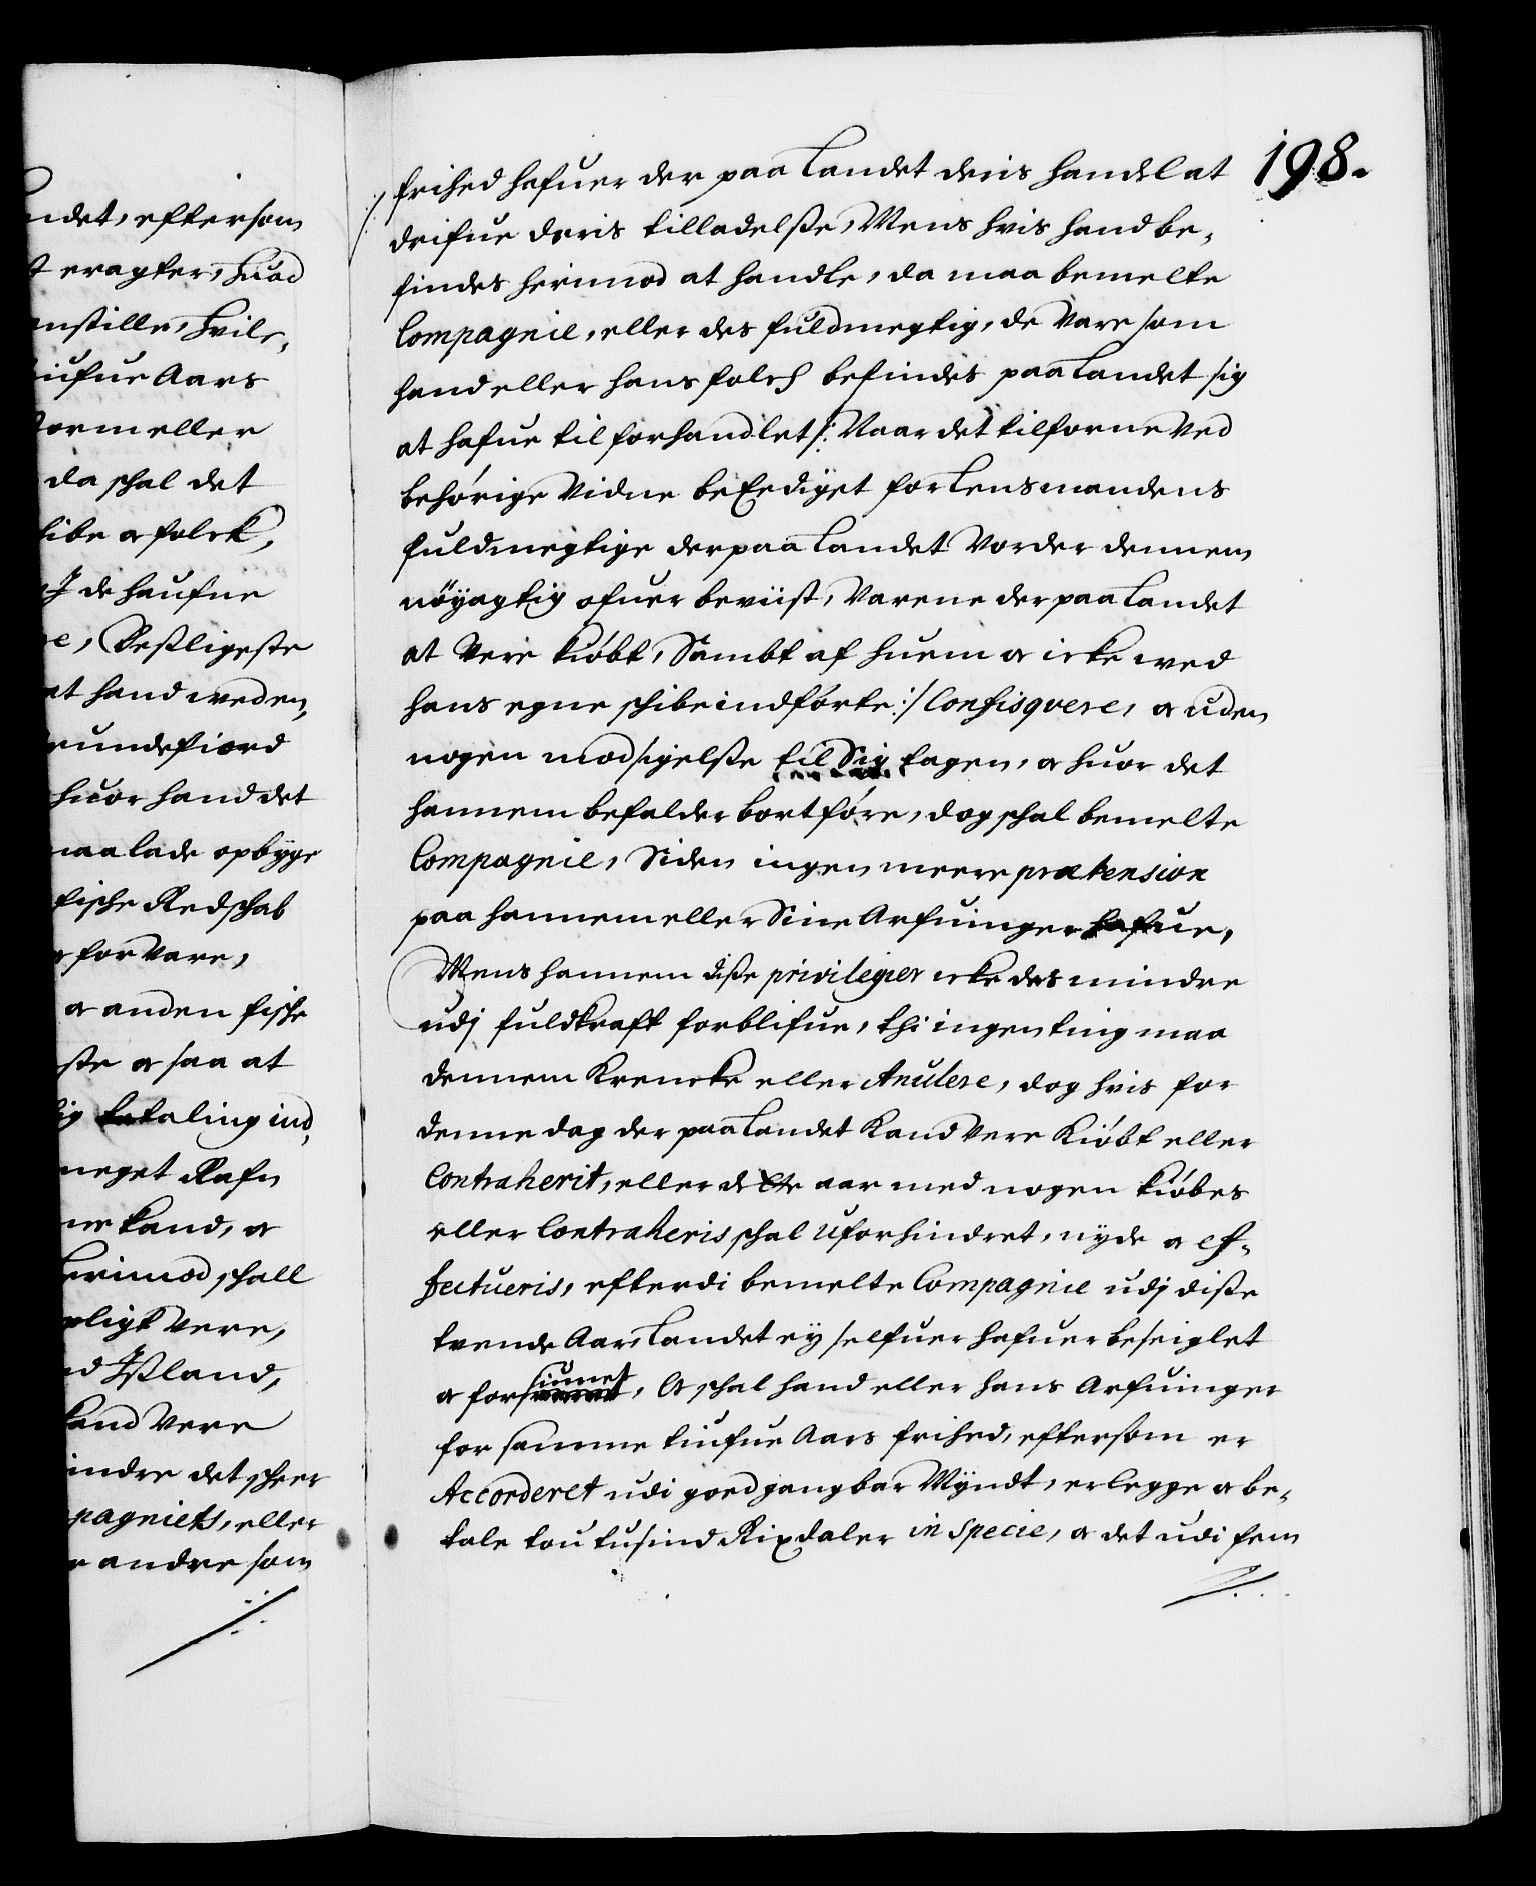 ndet, eftersom
t eragter, huad
anstille, hvile,
iufue Aars
form eller
da schal det
kibe og folck,
I de haufne
re, Desligeste
at hand weden,
rundefiord
huor hand det
maa lade opbyge
fische Redschab
forvare,
og anden fische
ste og saa at
lig betaling ind,
meget Rafn
ne kand, og
herimod schall
pligt Vere,
nd Ißland,
kand Vere
indre det scheer
pagniets, eller
andre som
198.
frihed hafuer der paa Landet deris handel at
drifue deris tilladelße, Mens hvis hand be,
findes herimod at handle, da maa bemelte
Compagnie, eller des fuldmegtig, de Vare som
hand eller hans folch befindes paa Landet sig
at hafue tilforhandlet /: Naar det tilforne Ved
behörige Vidne beEediget for Lensmandens
fuldmegtige der paa Landet Vorder dennem
nöyagtig ofuer beviist, Varene der paa Landet
at Vere kiöbt, Sambt af huem og icke med
hans egne schibe indförte :/ Confisqvere, og uden
nogen modsigelße til Sig tagen, og huor det
hannem befalder bortföre, dog schal bemelte
Compagnie, Siden ingen meere prætension
paa hannem eller Sine Arfuinger hafue,
Mens hannem diße privilegier icke des mindre
udj fuldkraft forblifue, thi ingen ting maa
dennem Krencke eller Anulere, dog hvis for
denne dag der paa Landet Kand Vere Kiöbt eller
Contraherit, eller dette aar med nogen kiöbes
eller Contraheris schal Uforhindret, nyde og ef-
fectueris, efterdi bemelte Compagnie udj diße
tvende Aar, Landet ey selfuer hafuer beseiglet
og forsiumet, Og schal hand eller hans Arfuinger
for samme tiufue Aars frihed, eftersom er
Accorderet udi goed gangbar Myndt, erlegge og be,
tale tou tusind Rixdaler in specie, og det udi fem